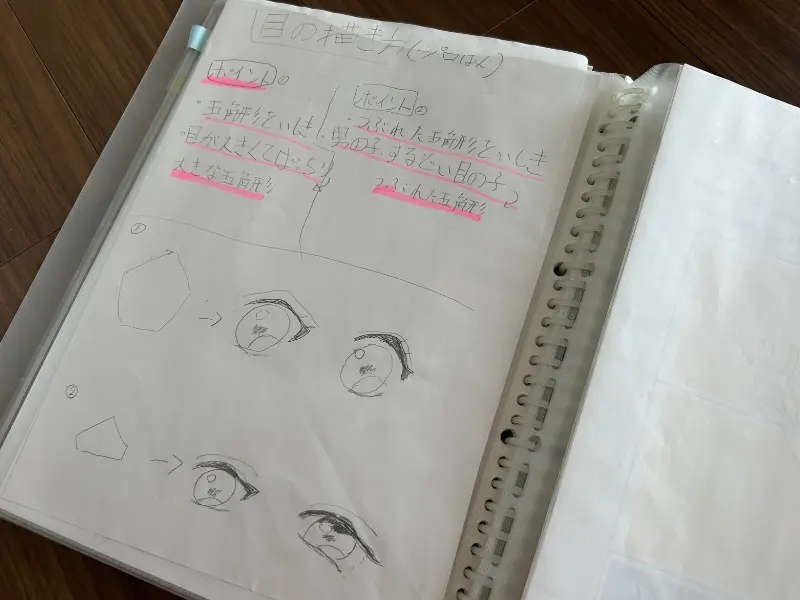 目の描き方(一プロはん)
ポイント①
・五角形をいしき
・目が大きくてぱっちり
大きな五角形
ポイント②
・つぶれた五角形をいしき
・男の子、するどい目の子
つぶれた五角形
①
②